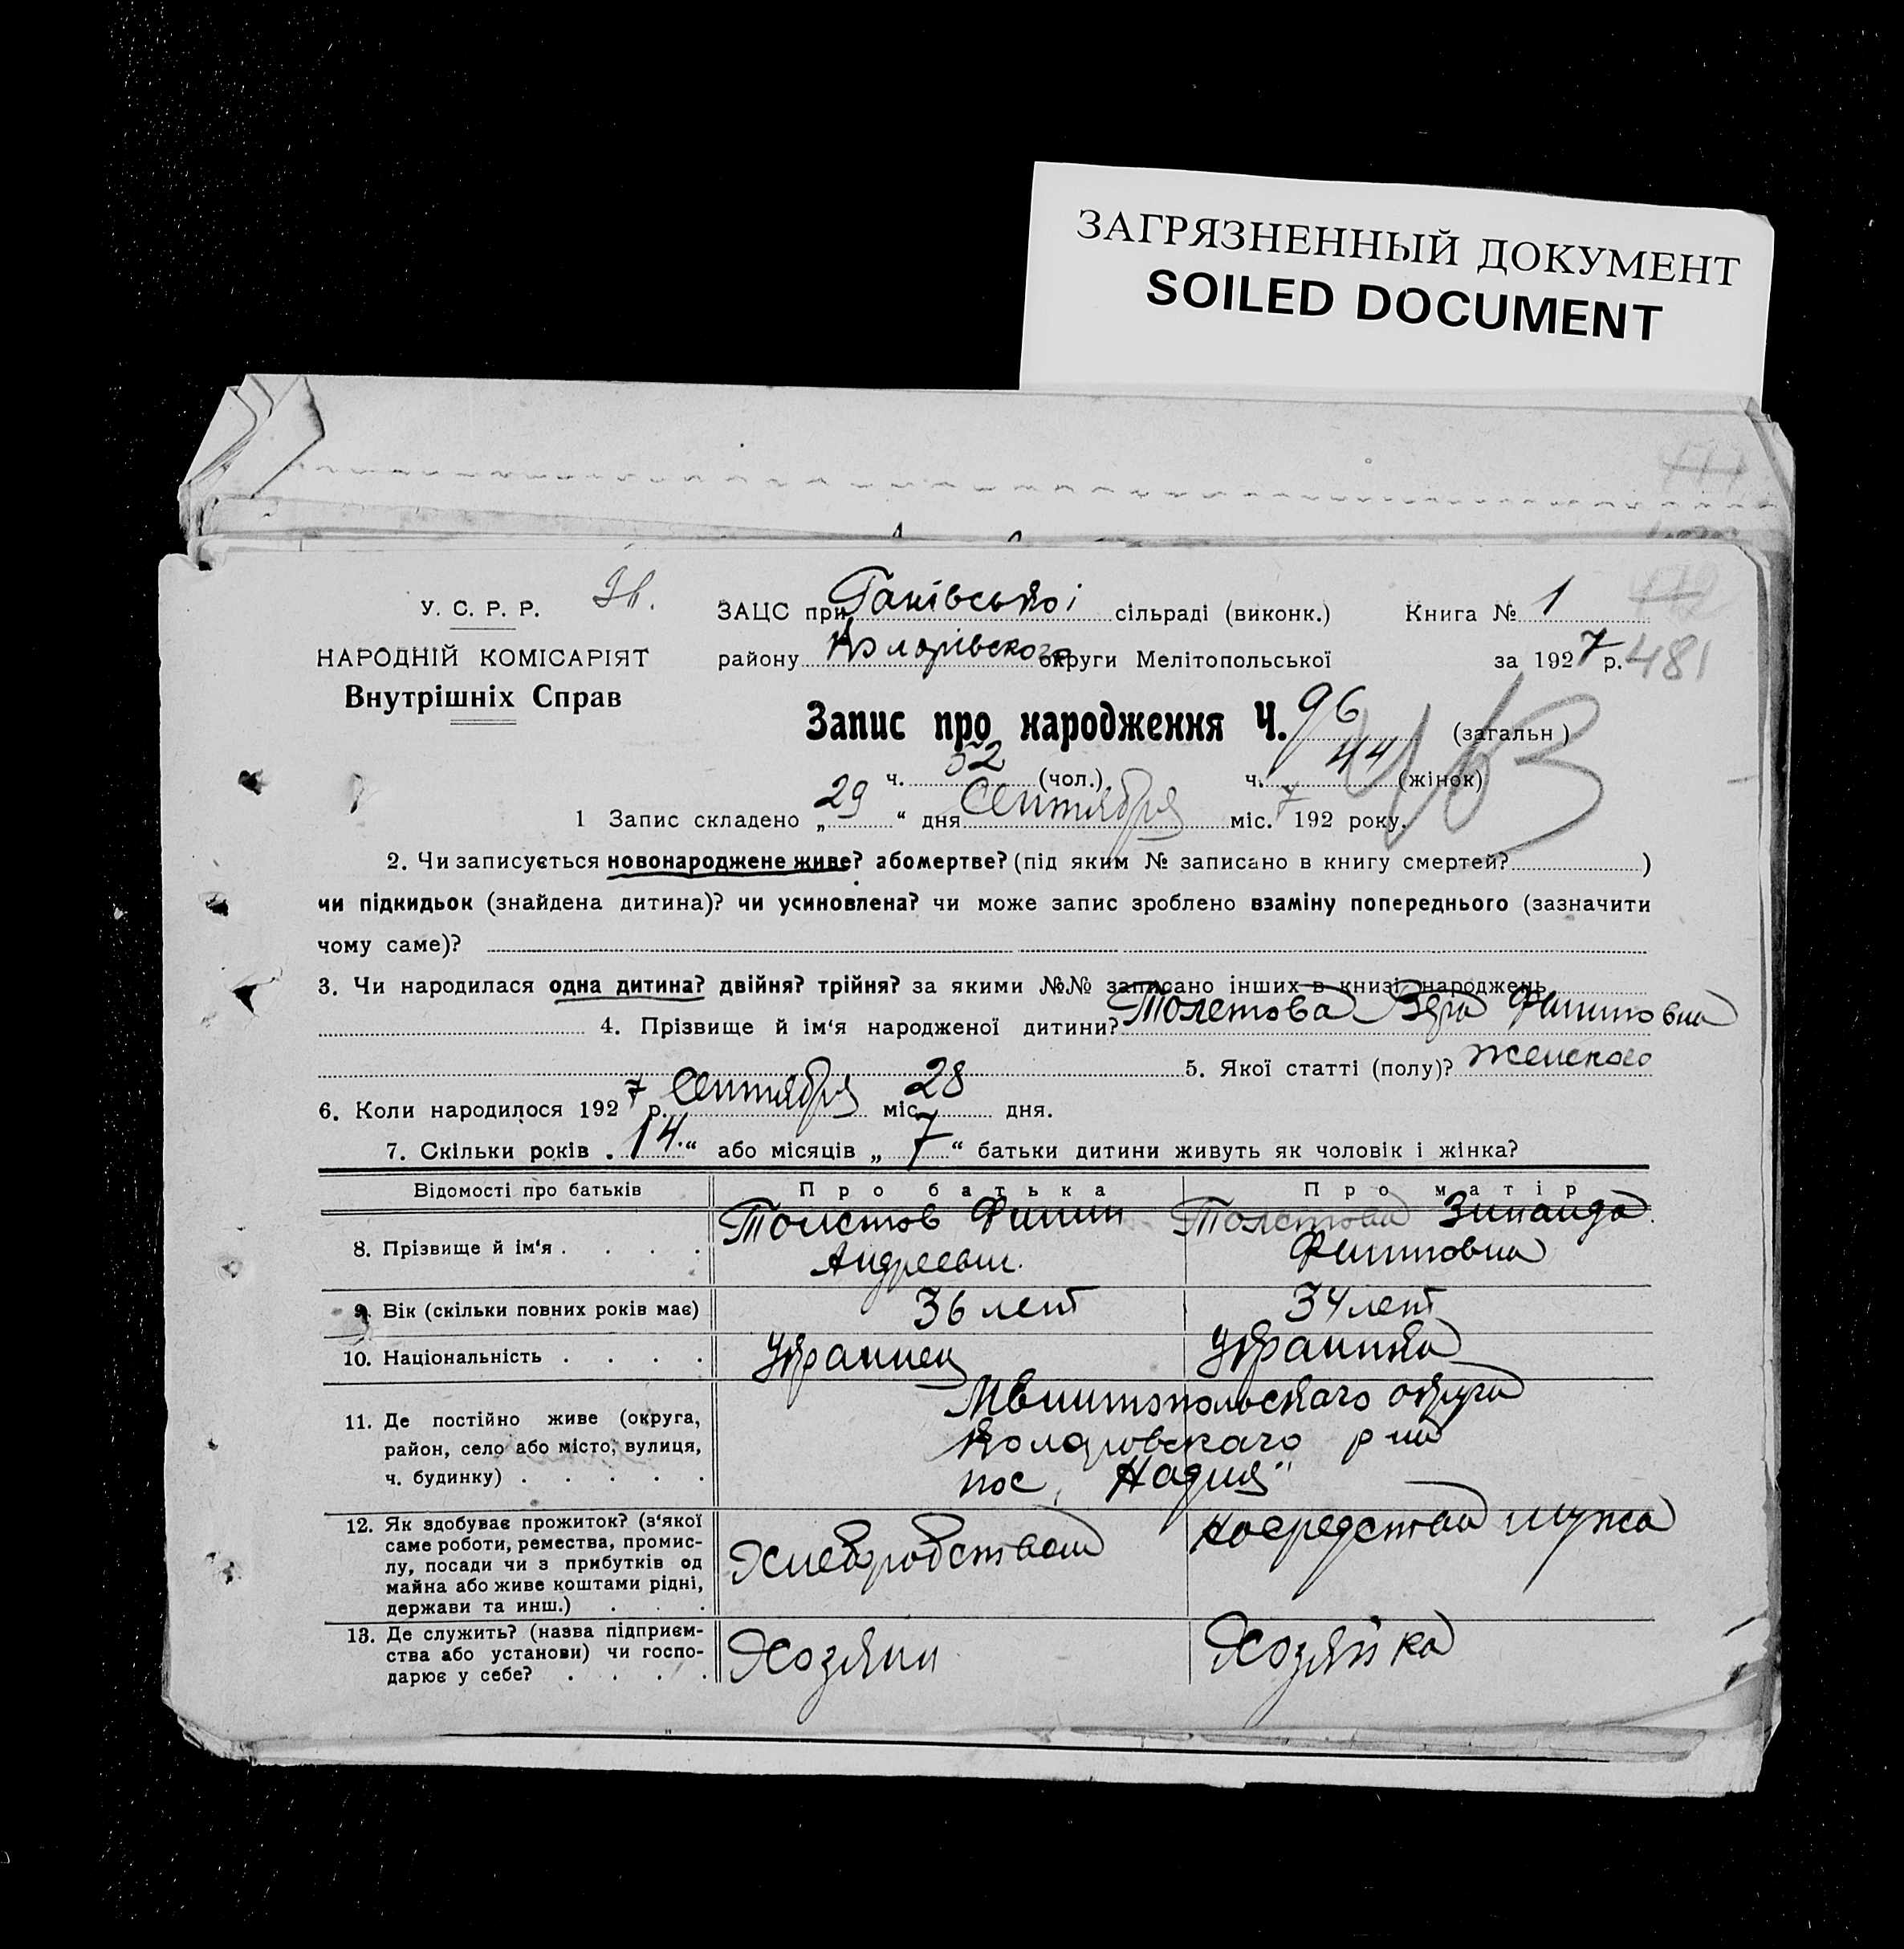 ЗАГРЯЗНЕННЫЙ ДОКУМЕНТ
SOILED DOCUMENT
У. С. Р. Р.
НАРОДНІЙ КОМІСАРІЯТ
Внутрішніх Справ
ЗАЦС при Ганівської сільраді (виконк.) Книга № 1
району Коларівского округи Мелітопольської за 1927 р. 481
Запис про народження Ч. 96 (загальн)
ч. 52 (чол.) ч. 44 (жінок)
1 Запис складено „29“ дня Сентября міс. 7 192 року.
2. Чи записується новонароджене живе? абомертве? (під яким № записано в книгу смертей? )
чи підкидьок (знайдена дитина)? чи усиновлена? чи може запис зроблено взаміну попереднього (зазначити
чому саме)?
3. Чи народилася одна дитина? двійня? трійня? за якими №№ записано інших в книзі народжень
4. Прізвище й ім'я народженої дитини? Толстова Вера Филиповна
5. Якої статті (полу)? женского
6. Коли народилося 1927 р. Сентября міс. 28 дня.
7. Скільки років „14“ або місяців „7“ батьки дитини живуть як чоловік і жінка?
Відомості про батьків Про батька Про матір
8. Прізвище й ім'я . . . . Толстов Филип Толстова Зинаида
Андреевич Филиповна
9. Вік (скільки повних років має) 36 лет 34 лет
10. Національність . . . . Украинец Украинка
11. Де постійно живе (округа, район, село або місто, вулиця, ч. будинку) . . . . .
Мелитопольскаго округа
Коларовскаго р на
пос. „Надия"
12. Як здобуває прожиток? (з'якої
саме роботи, ремества, промис-
лу, посади чи з прибутків од
майна або живе коштами рідні,
держави та инш.) . . .
Хлеборобством
на средства мужа
13. Де служить? (назва підприєм-
ства або установи) чи госпо-
дарює у себе? . . . .
Хозяин
Хозяйка